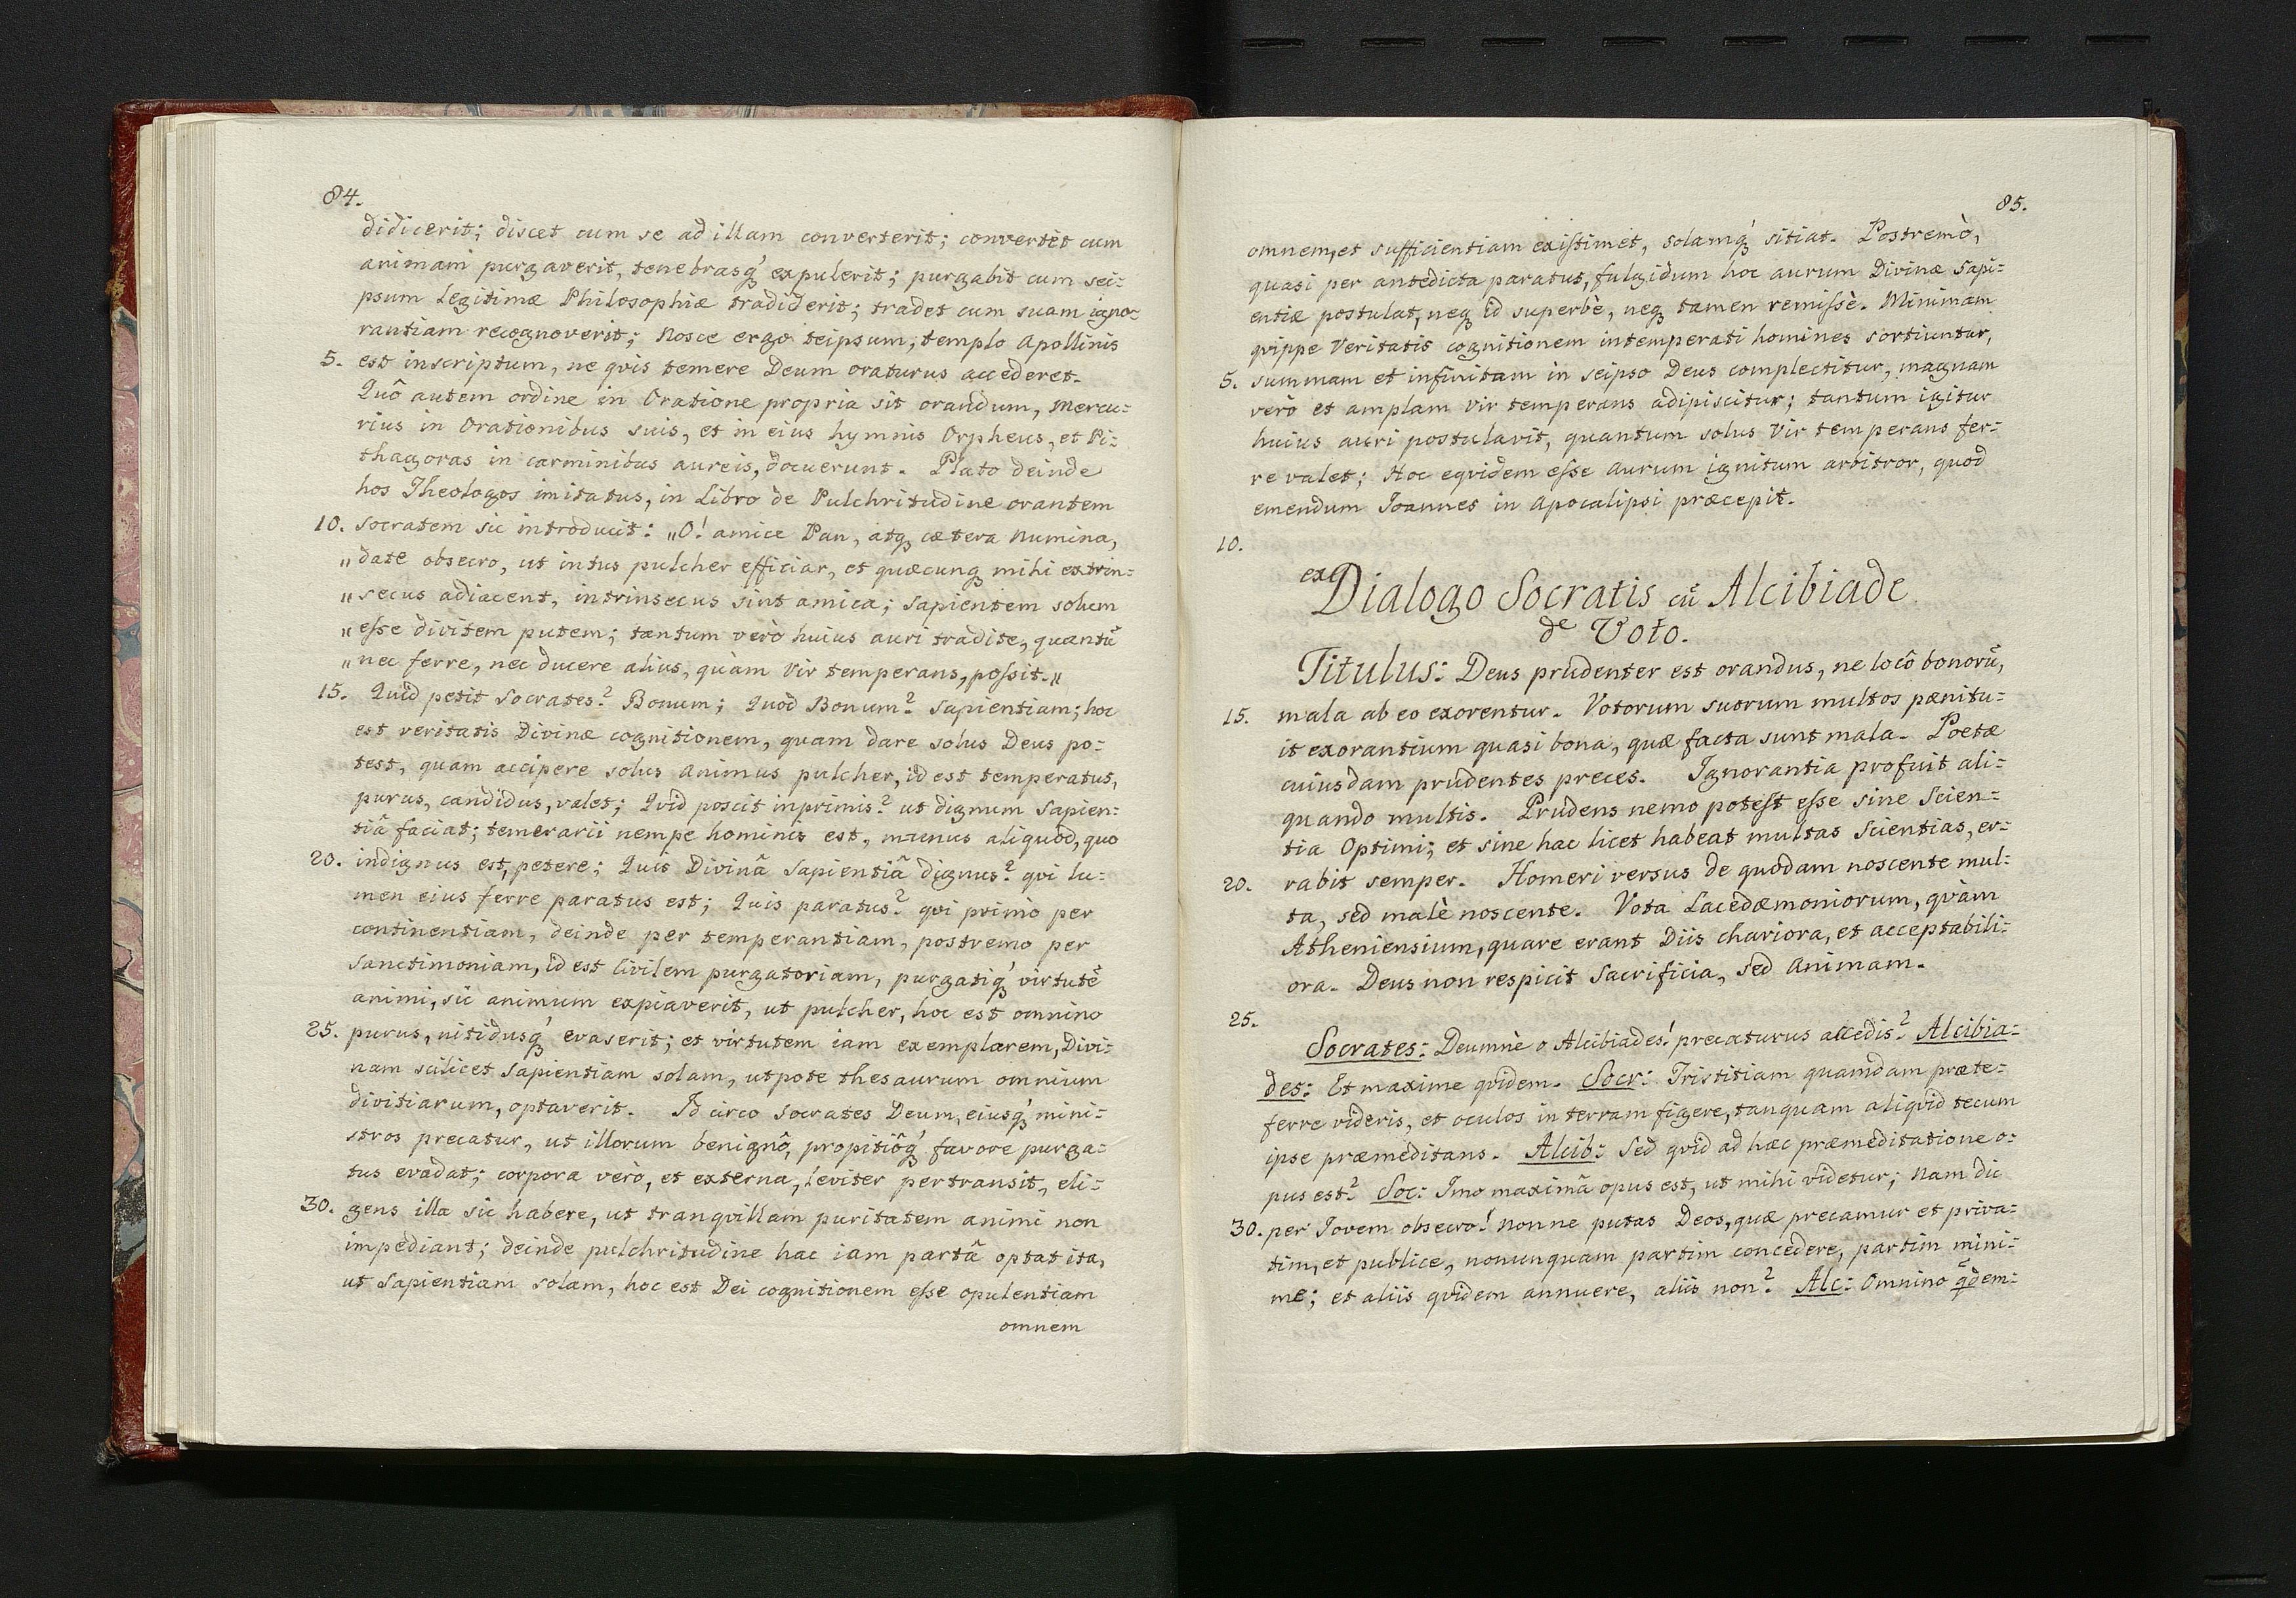 84.
didicerit; discet cum se ad illam converterit; convertet cum
animam purgaverit, tenebrasq́ expulerit; purgabit cum sei-
psum Legitimæ Philosophiæ tradiderit; tradet cum suam igno-
rantiam recognoverit; Nosce ergo teipsum, templo Apollinis
5. est inscriptum, ne qvis temere Deum oraturus accederet.
Quô autem ordine in Oratione propria sit orandum, Mercu-
rius in Orationibus suis, et in eius hymnis Orpheus, et Pi-
thagoras in carminibus aureis, docuerunt. Plato deinde
hos Theologos imitatus, in Libro de Pulchritudine orantem
10. Socratem sic introducit: „O! amice Pan, atq cætera Numina,
„date obsecro, ut intus pulcher efficiar, et quæcunq mihi extrin-
„secus adiacent, intrinsecus sint amica; sapientem solum
„eſse divitem putem; tantum verò huius auri tradite, quantū
„nec ferre, nec ducere alius, quàm Vir temperans, poſsit.„
15. Quid petit Socrates? Bonum; Quod Bonum? Sapientiam; hoc
est veritatis Divinæ cognitionem, quam dare solus Deus po-
test, quam accipere solus Animus pulcher, id est temperatus,
purus, candidus, valet; Qvid poscit inprimis? ut dignum Sapien-
tiâ faciat; temerarii nempe hominis est, munus aliquod, quo
20. indignus est, petere; Quis Divinâ Sapientiâ dignus? qvi lu-
men eius ferre paratus est; Quis paratus? qvi primò per
continentiam, deinde per temperantiam, postremo per
Sanctimoniam, id est Civilem purgatoriam, purgatiq́ virtutē
animi, sic animum expiaverit, ut pulcher, hoc est omnino
25. purus, nitidusq́ evaserit; et virtutem iam exemplarem, Divi-
nam scilicet Sapientiam solam, utpote thesaurum omnium
divitiarum, optaverit. Id circo Socrates Deum, eiusq́ mini-
stros precatur, ut illorum benignô, propitiôq́ favore purga-
tus evadat; corpora verò, et externa, leviter pertransit, eli-
30. gens illa sic habere, ut tranqvillam puritatem animi non
impediant; deinde pulchritudine hac iam partâ optat ita,
ut Sapientiam solam, hoc est Dei cognitionem eſse opulentiam
omnem
85.
omnem, et sufficientiam exiſtimet, solamq́ sitiat. Postremò,
quasi per antedicta paratus, fulgidum hoc aurum Divinæ Sapi-
entiæ postulat, neq id superbè, neq tamen remiſsè. Minimam
qvippe Veritatis cognitionem intemperati homines sortiuntur,
5. summam et infinitam in seipso Deus complectitur, magnam
verò et amplam Vir temperans adipiscitur; tantum igitur
huius auri postulavit, quantum solus Vir temperans fer-
re valet; Hoc eqvidem eſse Aurum ignitum arbitror, quod
emendum Joannes in Apocalipsi præcepit.
10.
ex Dialogo Socratis cū Alcibiade
de Voto.
Titulus: Deus prudenter est orandus, ne locô bonorū,
15. mala ab eo exorentur. Votorum suorum multos pænitu-
it exorantium quasi bona, quæ facta sunt mala. Poetæ
cuiusdam prudentes preces. Ignorantia profuit ali-
quando multis. Prudens nemo poteſt eſse sine Scien-
tia Optimi; et sine hac licet habeat multas Scientias, er-
20. rabit semper. Homeri versus de quodam noscente mul-
ta, sed malè noscente. Vota Lacedæmoniorum, qvàm
Atheniensium, quare erant Diis chariora, et acceptabili-
ora. Deus non respicit Sacrificia, sed Animam.
25.
Socrates: Deumnè o Alcibiades! precaturus accedis? Alcibia-
des: Et maxime qvidem. Socr: Tristitiam quamdam præte-
ferre videris, et oculos in terram figere, tanquam aliqvid tecum
ipse præmeditans. Alcib: Sed qvid ad hæc præmeditatione o-
pus est? Soc: Imo maximâ opus est, ut mihi videtur; Nam dic
30. per Jovem obsecro! Nonne putas Deos, quæ precamur et priva-
tim, et publice, nonunquam partim concedere, partim mini-
me; et aliis qvidem annuere, aliis non? Alc: Omnino q̃dem: